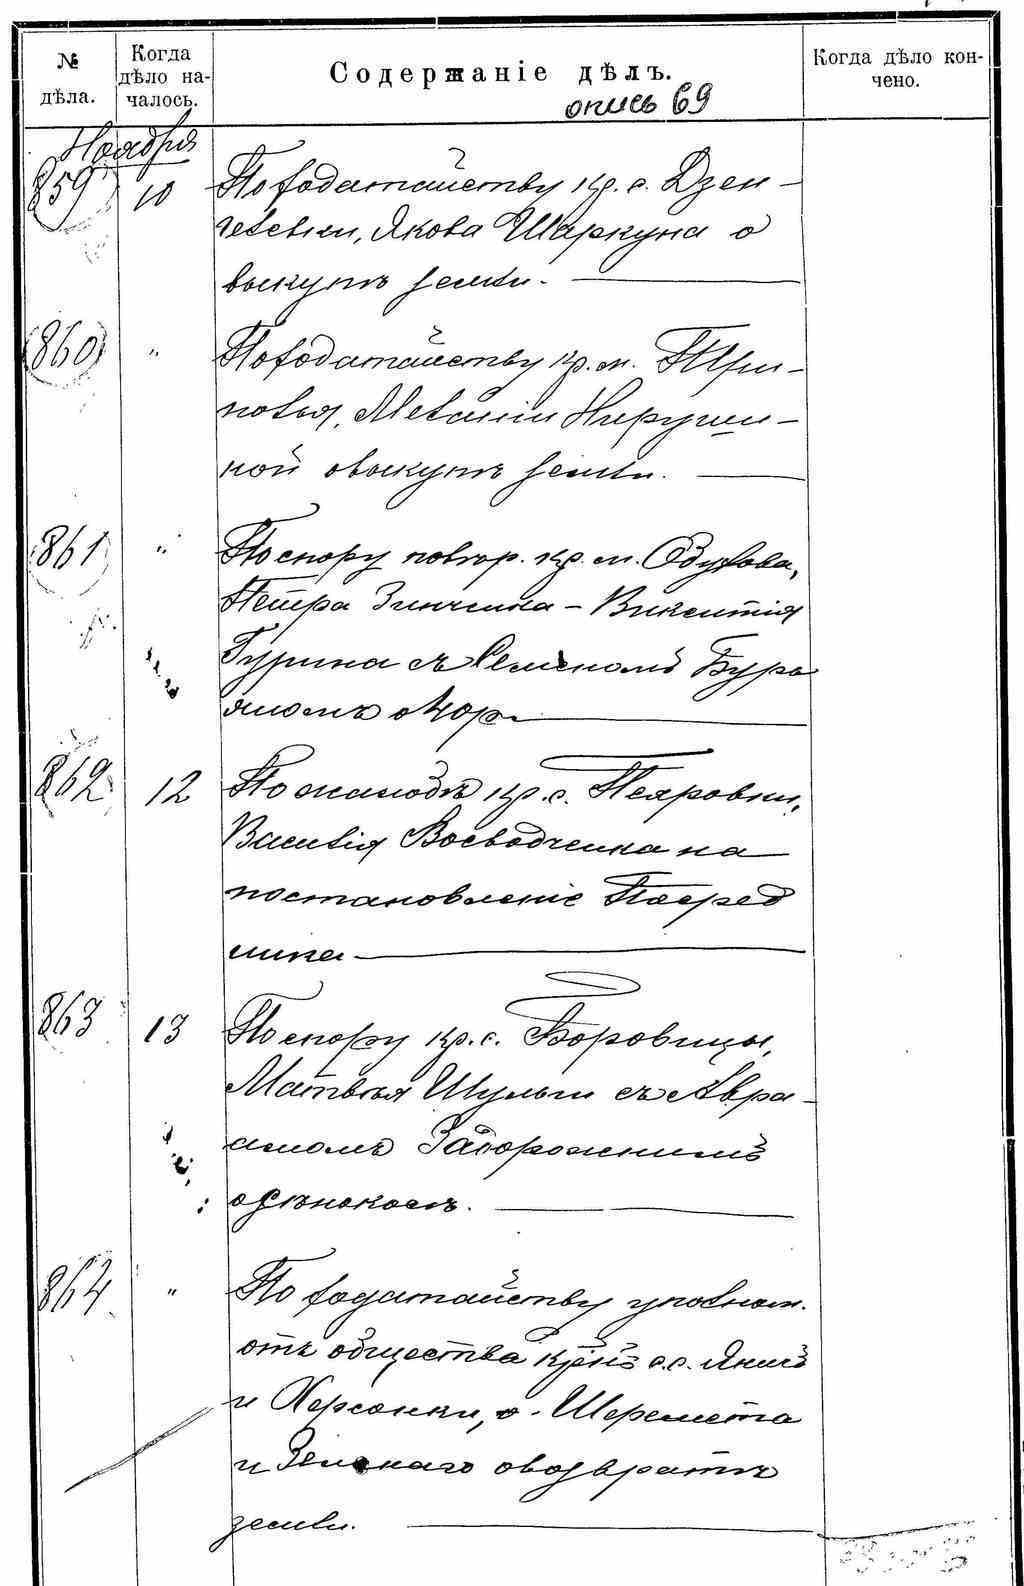 № дѣла.
Когда дѣло началось.
Содержаніе дѣлъ.
Когда дѣло кончено.
опись 69
Ноября
859 10 По ходатайству кр. с. Дзен-
гелевки, Якова Шаркуна о
выкупѣ земли.
860 " По ходатайству кр. м.
Меланіи
ной о выкупѣ земли.
861 " По спору повѣр. кр. м.
Петра Зинченка – Викентія
Гурина съ Семеномъ Бурь
яномъ о
862 12 По жалобѣ кр. с.
Василія Воеводченка на
постановленіе Посред
ника
863 13 По спору кр. с. Боровицы,
Матвѣя Шульги съ Авра-
амомъ Задорожнимъ
о сѣнокосѣ.
864 " По ходатайству уполном.
отъ общества кр–нъ с.с. Яничъ
и Херсонки, о. Шеремета
и Зелскаго о возвратѣ
земли.